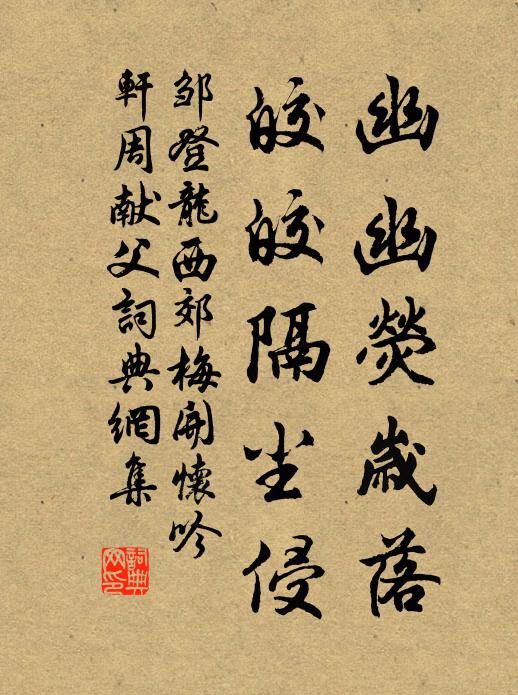 幽幽熒歲落
皎皎隔尘侵
邹登龍西郊梅開懷吟
軒周献父詞典網集
詞典网印